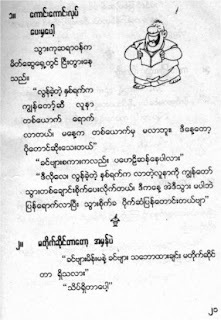 ၁။ ကောင်းကောင်းလုပ်
ပေးမှပေါ့
သွားကုဆရာဝန်က
မိတ်ဆွေရှေ့တွင် ငြီးတွားနေ
သည်။
"လွန်ခဲ့တဲ့ နှစ်ရက်က
ကျွန်တော့်ဆီ လူနာ
တစ်ယောက် ရောက်
လာတယ်၊ မနေ့က တစ်ယောက်မှ မလာဘူး၊ ဒီနေ့တော့
ပိုတောင်ဆိုးသေးတယ်"
"ခင်ဗျားစကားကလည်း ပဟေဠိဆန်နေပါလား"
"ဒီလိုလေ၊ လွန်ခဲ့တဲ့ နှစ်ရက်က လာတဲ့လူနာကို ကျွန်တော်
သွားတစ်ချောင်းစိုက်ပေးလိုက်တယ်၊ ဒီကနေ့ အဲဒီသွား မပါဘဲ
ပြန်ရောက်လာပြီး သွားစိုက်ခ ပိုက်ဆံပြန်တောင်းတယ်ဗျာ"
၂။ မတိုက်ဆိုင်တာတော့ အမှန်ပဲ
"ခင်ဗျားမိန်းမနဲ့ ခင်ဗျား သဘောထားချင်း မတိုက်ဆိုင်
တာ ရှိသလား"
"သိပ်ရှိတာပေါ့"
၁၁